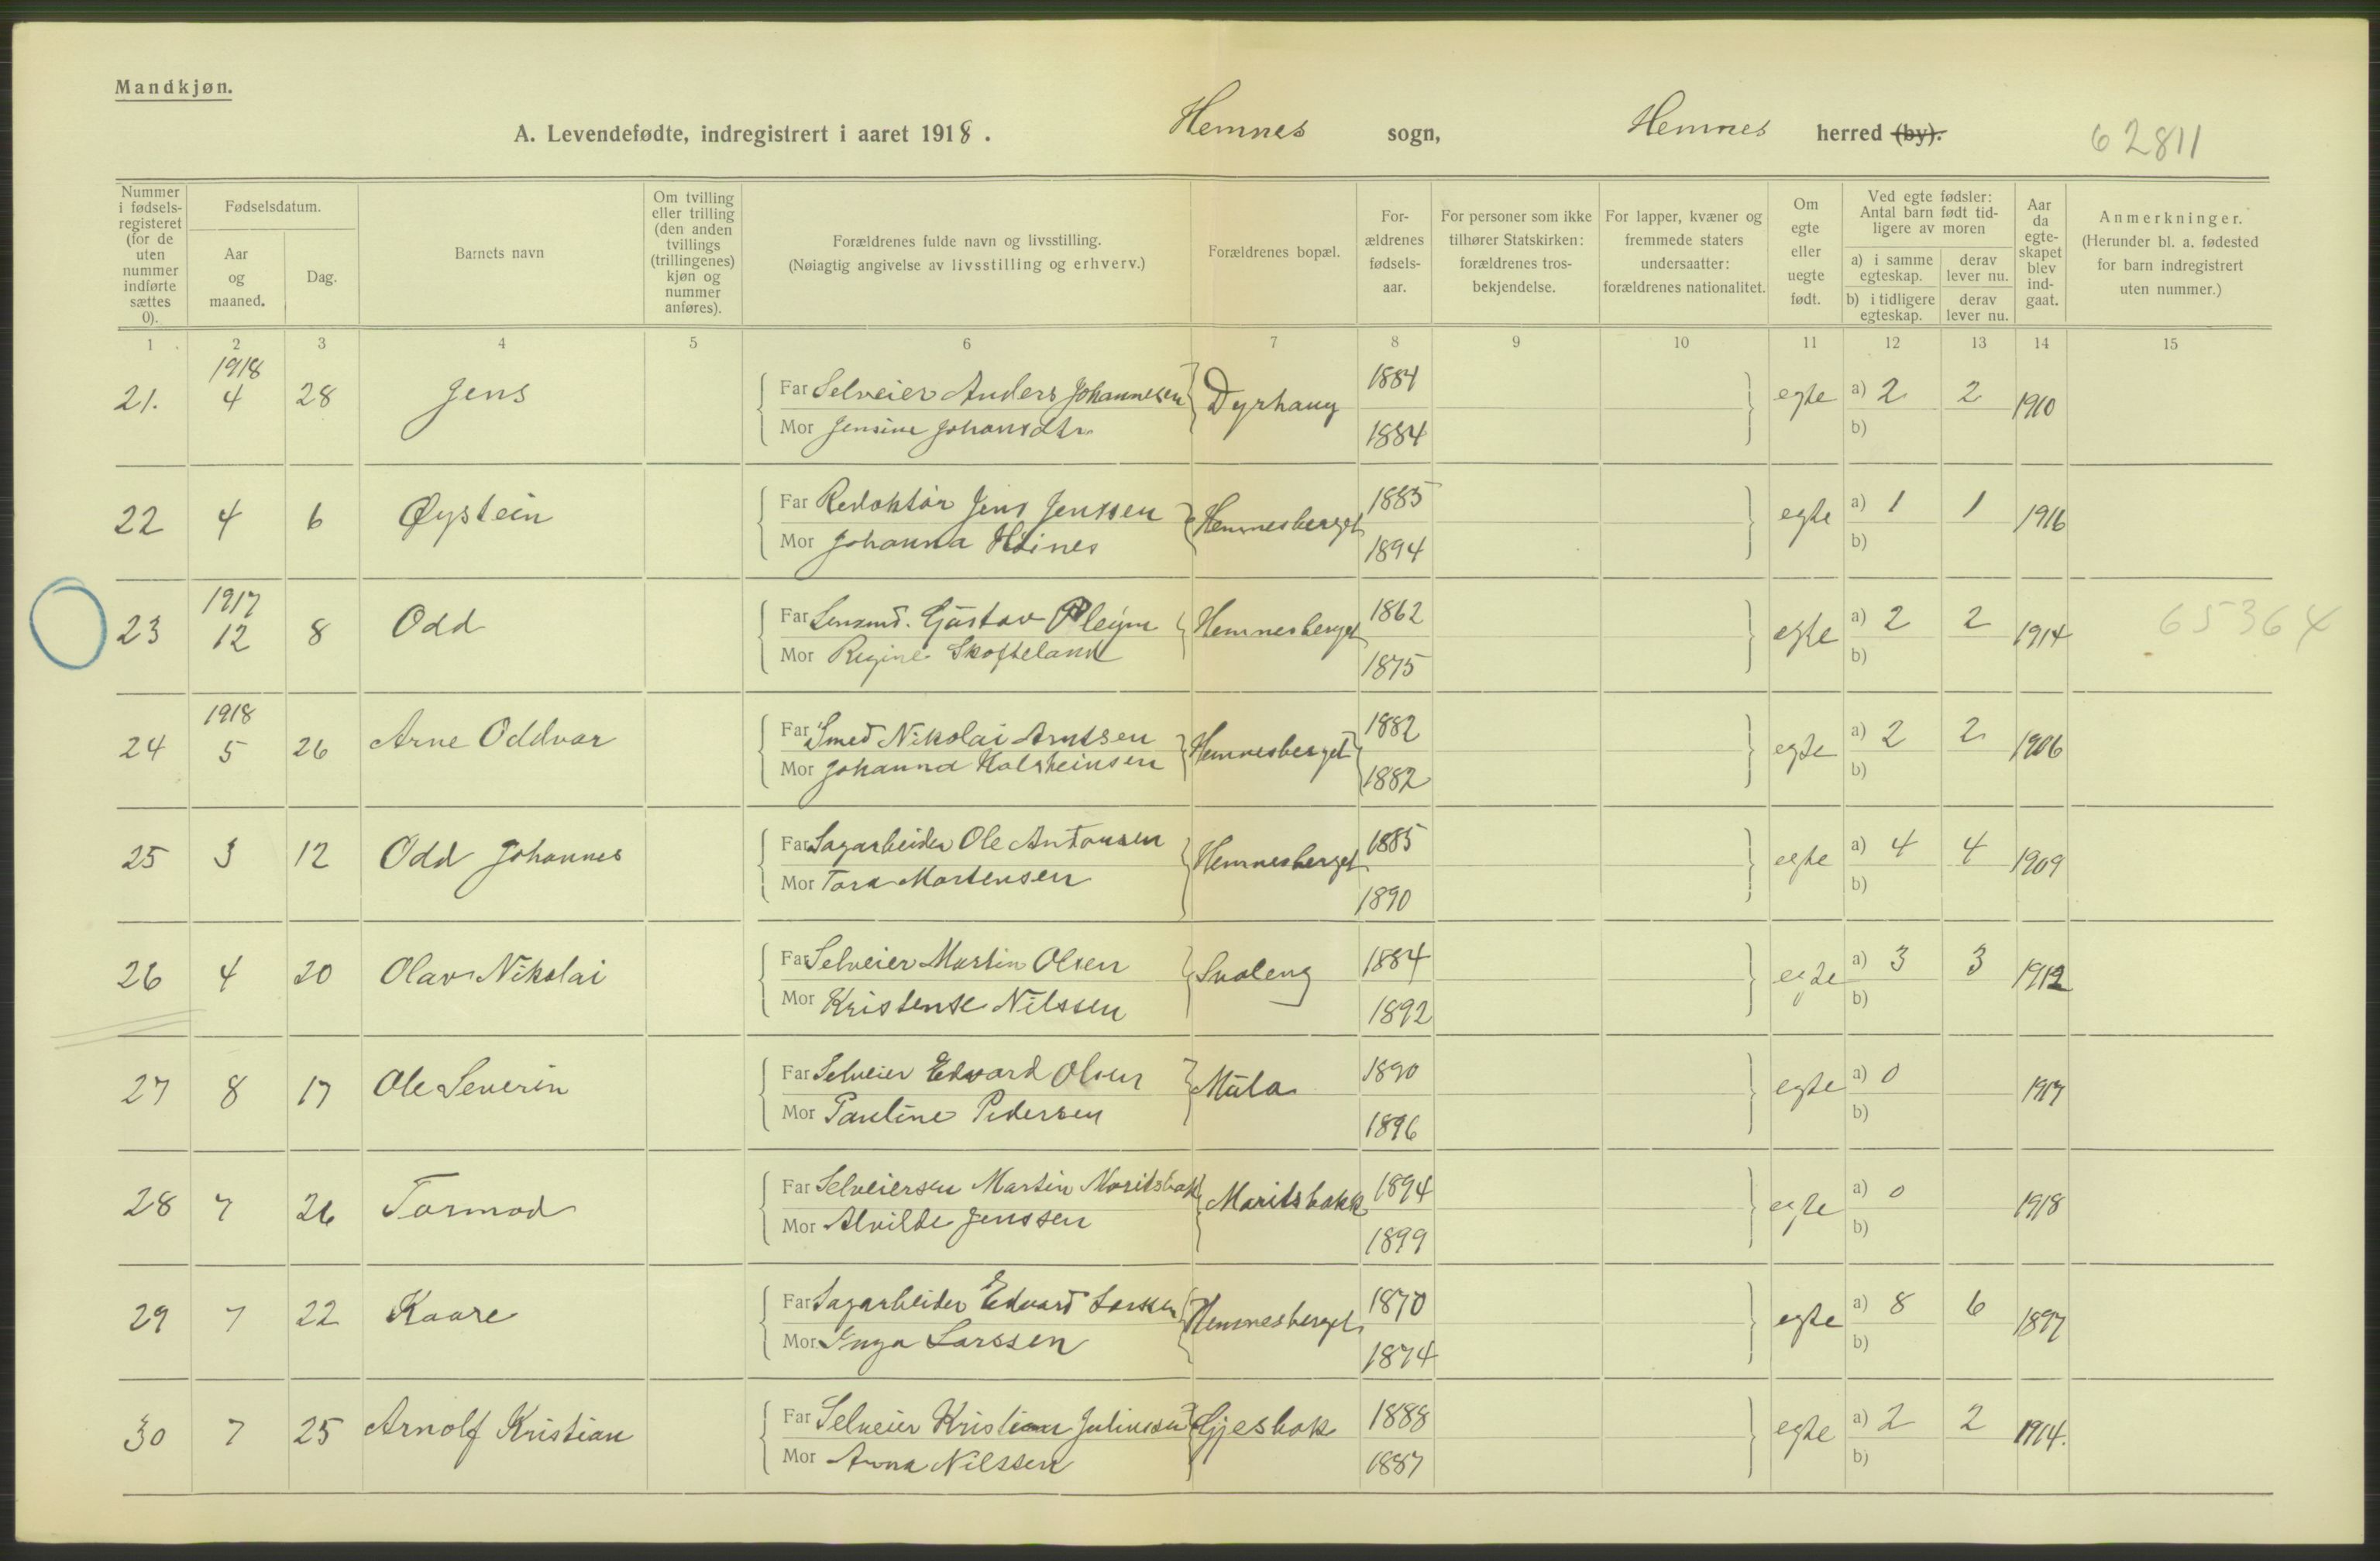 Mandkjøn.
A. Levendefødte, indregistrert i aaret 1918. Hemnes sogn, Hemnes herred (by). 62811
Nummer i fødselsregisteret (for de uten nummer indførte sættes 0).
Fødselsdatum.
Aar og maaned.
Dag.
Barnets navn
Om tvilling eller trilling (den anden tvillings (trillingenes) kjøn og nummer anføres).
Forældrenes fulde navn og livsstilling.
(Nøiagtig angivelse av livsstilling og erhverv.)
Forældrenes bopæl.
Forældrenes fødselsaar.
For personer som ikke tilhører Statskirken: forældrenes trosbekjendelse.
For lapper, kvæner og fremmede staters undersaatter: forældrenes nationalitet.
Om egte eller uegte født.
Ved egte fødsler: Antal barn født tidligere av moren
a) i samme egteskap. derav lever nu.
b) i tidligere egteskap. derav lever nu.
Aar da egteskapet blev indgaat.
Anmerkninger.
(Herunder bl. a. fødested for barn indregistrert uten nummer.)
1 2 3 4 5 6 7 8 9 10 11 12 13 14 15
1918
21. 4 28 Jens Far Selveier Anders Johannesen Dyrhaug 1884 egte a) 2 2 1910
Mor Jensine Johansdtr 1884 b)
22 4 6 Øystein Far Redaktør Jens Jenssen Hemnesberget 1885 egte a) 1 1 1916
Mor Johanna Høines 1894 b)
1917
23 12 8 Odd Far Lensmd. Gustav Pleym Hemnesberget 1862 egte a) 2 2 1914 65364
Mor Regine Skofteland 1875 b)
1918
24 5 26 Arne Oddvar Far Smed Nikolai Arntsen Hemnesberget 1882 egte a) 2 2 1906
Mor Johanna Halsteinsen 1882 b)
25 3 12 Odd Johannes Far Sagarbeider Ole Antonsen Hemnesberget 1885 egte a) 4 4 1909
Mor Tora Mortensen 1890 b)
26 4 20 Olav Nikolai Far Selveier Martin Olsen Svaleng 1884 egte a) 3 3 1912
Mor Kristense Nilssen 1892 b)
27 8 17 Ole Severin Far Selveier Edvard Olsen Mula 1890 egte a) 0 1917
Mor Pauline Pedersen 1896 b)
28 7 26 Tormod Far Selveiersøn Martin Moritsbak Maritsbakk 1894 egte a) 0 1918
Mor Alvilde Jenssen 1899 b)
29 7 22 Kaare Far Sagarbeider Edvard Larssen Hemnesberget 1870 egte a) 8 6 1897
Mor Inga Larssen 1874 b)
30 7 25 Arnolf Kristian Far Selveier Kristian Juliussen Gjesbak 1888 egte a) 2 2 1914.
Mor Anna Nilssen 1887 b)